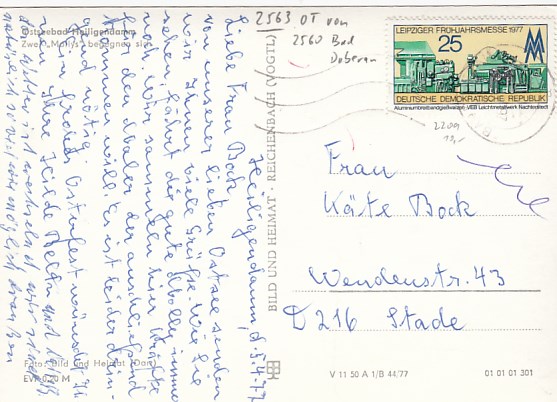 Ostseebad Heiligendamm
Zwei „Mollys" begegnen sich
2563 OT von
2560 Bad
Doberan
LEIPZIGER FRÜHJAHRSMESSE 1977
25
DEUTSCHE DEMOKRATISCHE REPUBLIK
Aluminiumbreitbandgießwalzen · VEB Leichtmetallwerk Nachterstedt
2200
10,-
Frau
Käte Bock
Wendenstr. 43
D 216 Stade
BILD UND HEIMAT · REICHENBACH (VOGTL)
Heiligendamm, d. 5.4.77
Liebe Frau Bock
von unserer lieben Ostsee senden
wir Ihnen viele Grüße. Wie Sie
sehen, fährt die gute Molly immer
noch. Wir sammeln hier Kräfte
für den Maler der anschließend
kommen will. Es ist leider drin-
gend nötig.
Ein frohes Osterfest wünschen
Ihre Hilde
Foto: Bild und Heimat (Dorf)
EVP 0,20 M
V 11 50 A 1/B 44/77
01 01 01 301